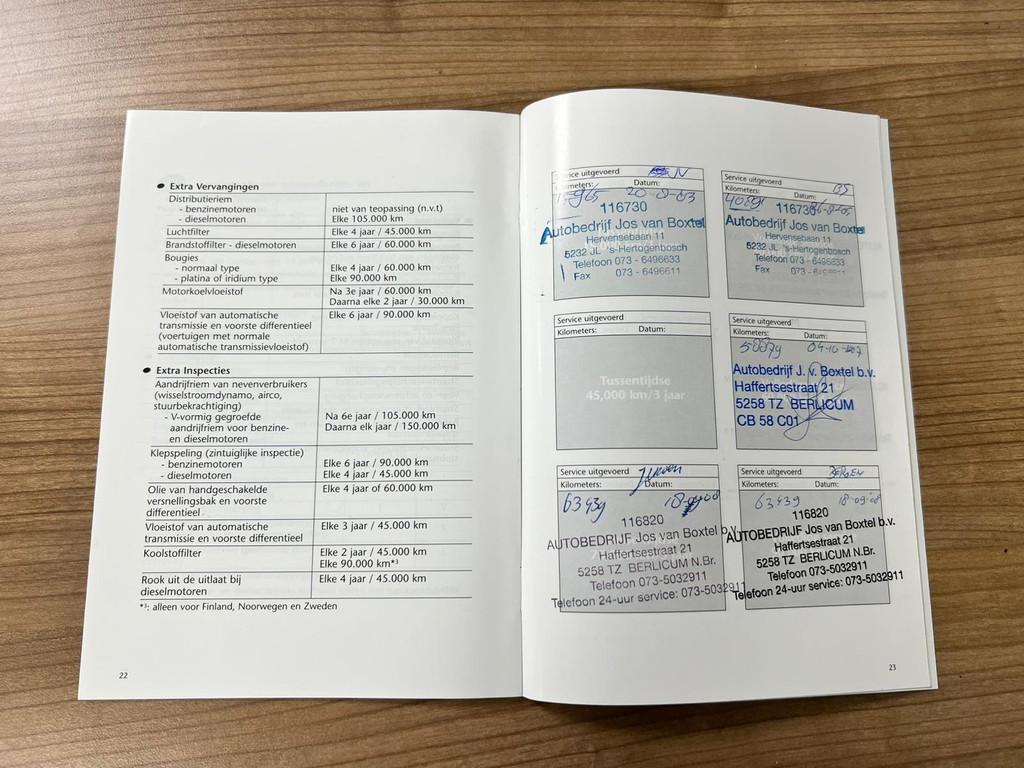 ● Extra Vervangingen
Distributieriem
- benzinemotoren niet van teopassing (n.v.t)
- dieselmotoren Elke 105.000 km
Luchtfilter Elke 4 jaar / 45.000 km
Brandstoffilter - dieselmotoren Elke 6 jaar / 60.000 km
Bougies
- normaal type Elke 4 jaar / 60.000 km
- platina of iridium type Elke 90.000 km
Motorkoelvloeistof Na 3e jaar / 60.000 km
Daarna elke 2 jaar / 30.000 km
Vloeistof van automatische Elke 6 jaar / 90.000 km
transmissie en voorste differentieel
(voertuigen met normale
automatische transmissievloeistof)
● Extra Inspecties
Aandrijfriem van nevenverbruikers
(wisselstroomdynamo, airco,
stuurbekrachtiging)
- V-vormig gegroefde Na 6e jaar / 105.000 km
aandrijfriem voor benzine- Daarna elk jaar / 150.000 km
en dieselmotoren
Klepspeling (zintuiglijke inspectie)
- benzinemotoren Elke 6 jaar / 90.000 km
- dieselmotoren Elke 4 jaar / 45.000 km
Olie van handgeschakelde Elke 4 jaar of 60.000 km
versnellingsbak en voorste
differentieel
Vloeistof van automatische Elke 3 jaar / 45.000 km
transmissie en voorste differentieel
Koolstoffilter Elke 2 jaar / 45.000 km
Elke 90.000 km*³
Rook uit de uitlaat bij Elke 4 jaar / 45.000 km
dieselmotoren
*³: alleen voor Finland, Noorwegen en Zweden
22
Service uitgevoerd
Kilometers: Datum:
116730
Autobedrijf Jos van Boxtel
Hervensebaan 11
5232 JL 's-Hertogenbosch
Telefoon 073 - 6496633
Fax 073 - 6496611
Service uitgevoerd
Kilometers: Datum:
116730
Autobedrijf Jos van Boxtel
Hervensebaan 11
5232 JL 's-Hertogenbosch
Telefoon 073 - 6496633
Fax 073 - 6496611
Service uitgevoerd
Kilometers: Datum:
Tussentijdse
45,000 km/3 jaar
Service uitgevoerd
Kilometers: Datum:
Autobedrijf J. v. Boxtel b.v.
Haffertsestraat 21
5258 TZ BERLICUM
CB 58 C01
Service uitgevoerd
Kilometers: Datum:
63439 18-09-08
116820
AUTOBEDRIJF Jos van Boxtel b.v.
Haffertsestraat 21
5258 TZ BERLICUM N.Br.
Telefoon 073-5032911
Telefoon 24-uur service: 073-5032911
Service uitgevoerd
Kilometers: Datum:
63439 18-09-'08
116820
AUTOBEDRIJF Jos van Boxtel b.v.
Haffertsestraat 21
5258 TZ BERLICUM N.Br.
Telefoon 073-5032911
Telefoon 24-uur service: 073-5032911
23